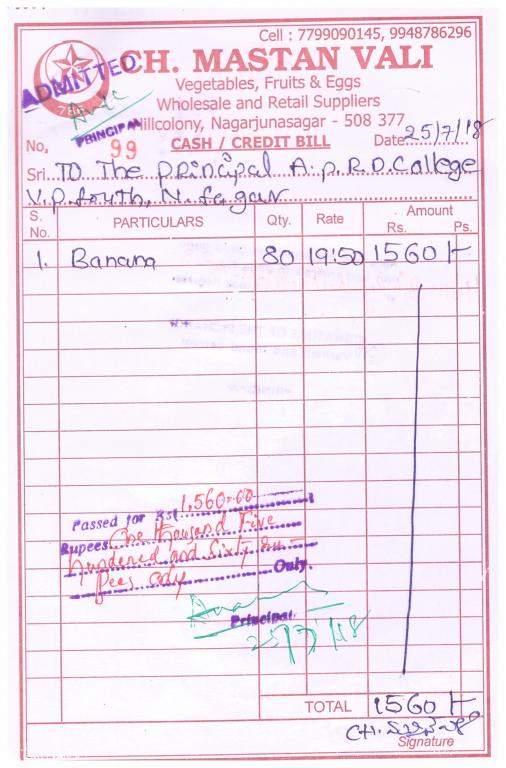 Cell : 7799090145, 9948786296
CH. MASTAN VALI
ADMITTED
Vegetables, Fruits & Eggs
Wholesale and Retail Suppliers
PRINCIPAL
Hillcolony, Nagarjunasagar - 508 377
786
No. 99 CASH / CREDIT BILL Date 25/7/18
Sri. TO The principal A.p.R.D.College
V.p.South, N.Sagar
S. No. PARTICULARS Qty. Rate Amount Rs. Ps.
1. Banana 80 19:50 1560 -
Passed for Rs. 1,560=00
Rupees One thousand Five
hundered and Sixty
only Only.
Principal
25/7/18
TOTAL 1560 -
CH.
Signature